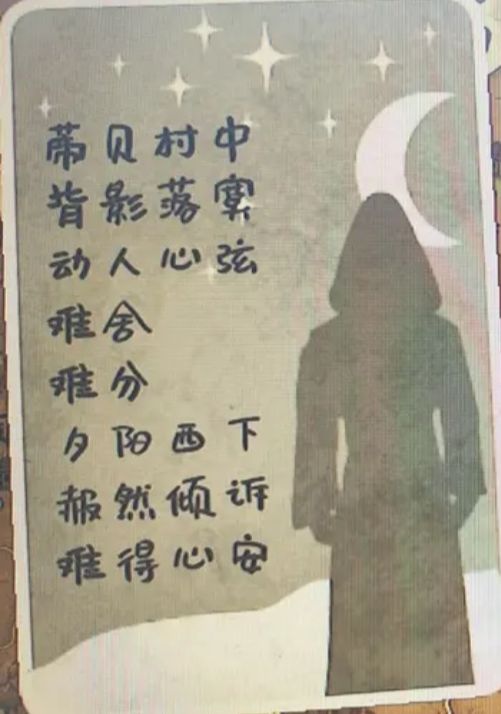 蒂贝村中
背影落寞
动人心弦
难舍
难分
夕阳西下
赧然倾诉
难得心安